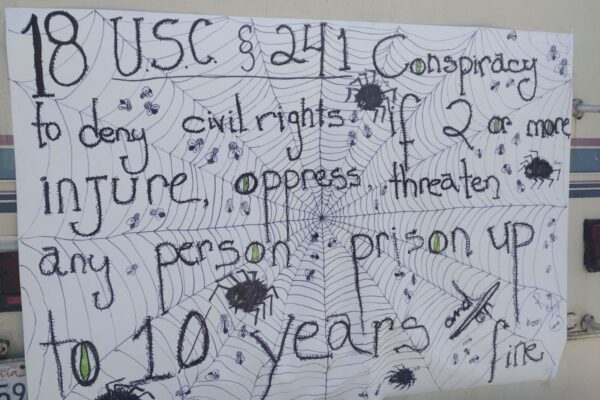 18 U.S.C. § 241 Conspiracy
to deny civil rights if 2 or more
injure, oppress, threaten
any person prison up
to 10 years and/or fine
59